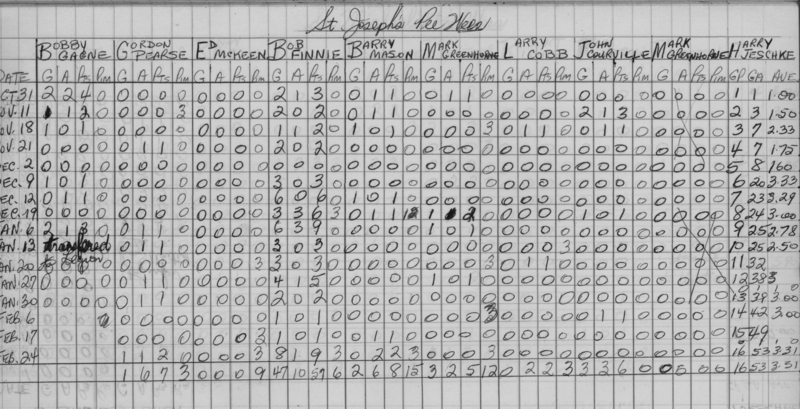 St. Joseph's Pee Wees
BOBBY GAGNE GORDON PEARSE ED MCKEEN BOB FINNIE BARRY MASON MARK GREENHORNE LARRY COBB JOHN COURVILLE MARK GREENHORNE HARRY JESCHKE
DATE G A Pts Pm G A Pts Pm G A Pts Pm G A Pts Pm G A Pts Pm G A Pts Pm G A Pts Pm G A Pts Pm G A Pts Pm GP GA AVE
OCT 31 2 2 4 0 0 0 0 0 0 0 0 0 2 1 3 0 0 1 1 0 0 1 1 0 0 0 0 0 0 0 0 0 0 0 0 0 1 1 1.00
NOV. 11 1 2 0 0 0 0 3 0 0 0 0 2 0 2 0 0 1 1 0 0 0 0 0 0 0 0 0 2 1 3 0 0 0 0 0 2 3 1.50
NOV. 18 1 0 1 0 0 0 0 0 0 0 0 0 1 1 2 0 1 0 1 0 0 0 0 3 0 1 1 0 0 1 1 0 0 0 0 0 3 7 2.33
NOV. 21 0 0 0 0 0 1 1 0 0 0 0 0 2 0 2 0 0 0 0 0 0 0 0 0 0 0 0 0 0 0 0 0 0 0 0 0 4 7 1.75
DEC. 2 0 0 0 0 0 0 0 0 0 0 0 0 0 0 0 0 0 0 0 0 0 0 0 0 0 0 0 0 0 0 0 0 0 0 0 0 5 8 1.60
DEC. 9 1 0 1 0 0 0 0 0 0 0 0 0 3 0 3 0 0 0 0 0 0 0 0 0 0 0 0 0 0 0 0 0 0 0 0 0 6 20 3.33
DEC. 12 0 1 1 0 0 0 0 0 0 0 0 0 6 0 6 0 1 0 1 0 0 0 0 0 0 0 0 0 0 0 0 0 0 0 0 0 7 23 3.29
DEC. 19 0 0 0 0 0 0 0 0 0 0 0 0 3 3 6 3 0 1 1 12 1 2 0 0 0 0 1 0 1 0 0 0 0 0 8 24 3.00
JAN. 6 2 1 3 0 1 1 0 0 0 0 0 6 3 9 0 0 0 0 0 1 0 1 0 0 0 0 0 0 0 0 0 0 0 0 0 9 25 2.78
JAN. 13 transfered 0 1 1 0 0 0 0 0 3 0 3 0 0 0 0 0 0 0 0 0 0 0 0 3 0 0 0 0 0 0 0 0 10 25 2.50
JAN. 20 to 0 0 0 0 0 0 0 3 3 0 3 0 0 0 0 0 0 0 0 3 0 1 1 0 0 0 0 0 0 0 0 0 11 32
JAN. 27 0 1 1 0 0 0 0 0 4 1 5 0 0 0 0 0 1 0 1 0 0 0 0 0 0 0 0 0 0 0 0 0 12 38
JAN. 30 0 1 1 0 0 0 0 0 2 0 2 0 0 0 0 0 0 0 0 0 0 0 0 0 0 0 0 0 0 0 0 0 13 38 3.00
FEB. 6 0 0 0 0 0 0 0 0 1 0 1 0 0 0 0 0 0 0 0 3 0 0 0 0 0 0 0 0 0 0 0 0 14 42 3.00
FEB. 17 0 0 0 0 0 0 0 3 1 0 1 0 0 1 1 0 0 0 0 0 0 0 0 0 0 0 0 0 0 0 0 0 15 49
FEB. 24 1 1 2 0 0 0 0 3 8 1 9 3 0 2 2 3 0 0 0 3 0 0 0 0 0 0 0 0 0 0 0 0 16 53 3.31
1 6 7 3 0 0 0 9 47 10 57 6 2 6 8 15 3 2 5 12 0 2 2 3 3 3 6 0 0 0 0 0 16 53 3.31